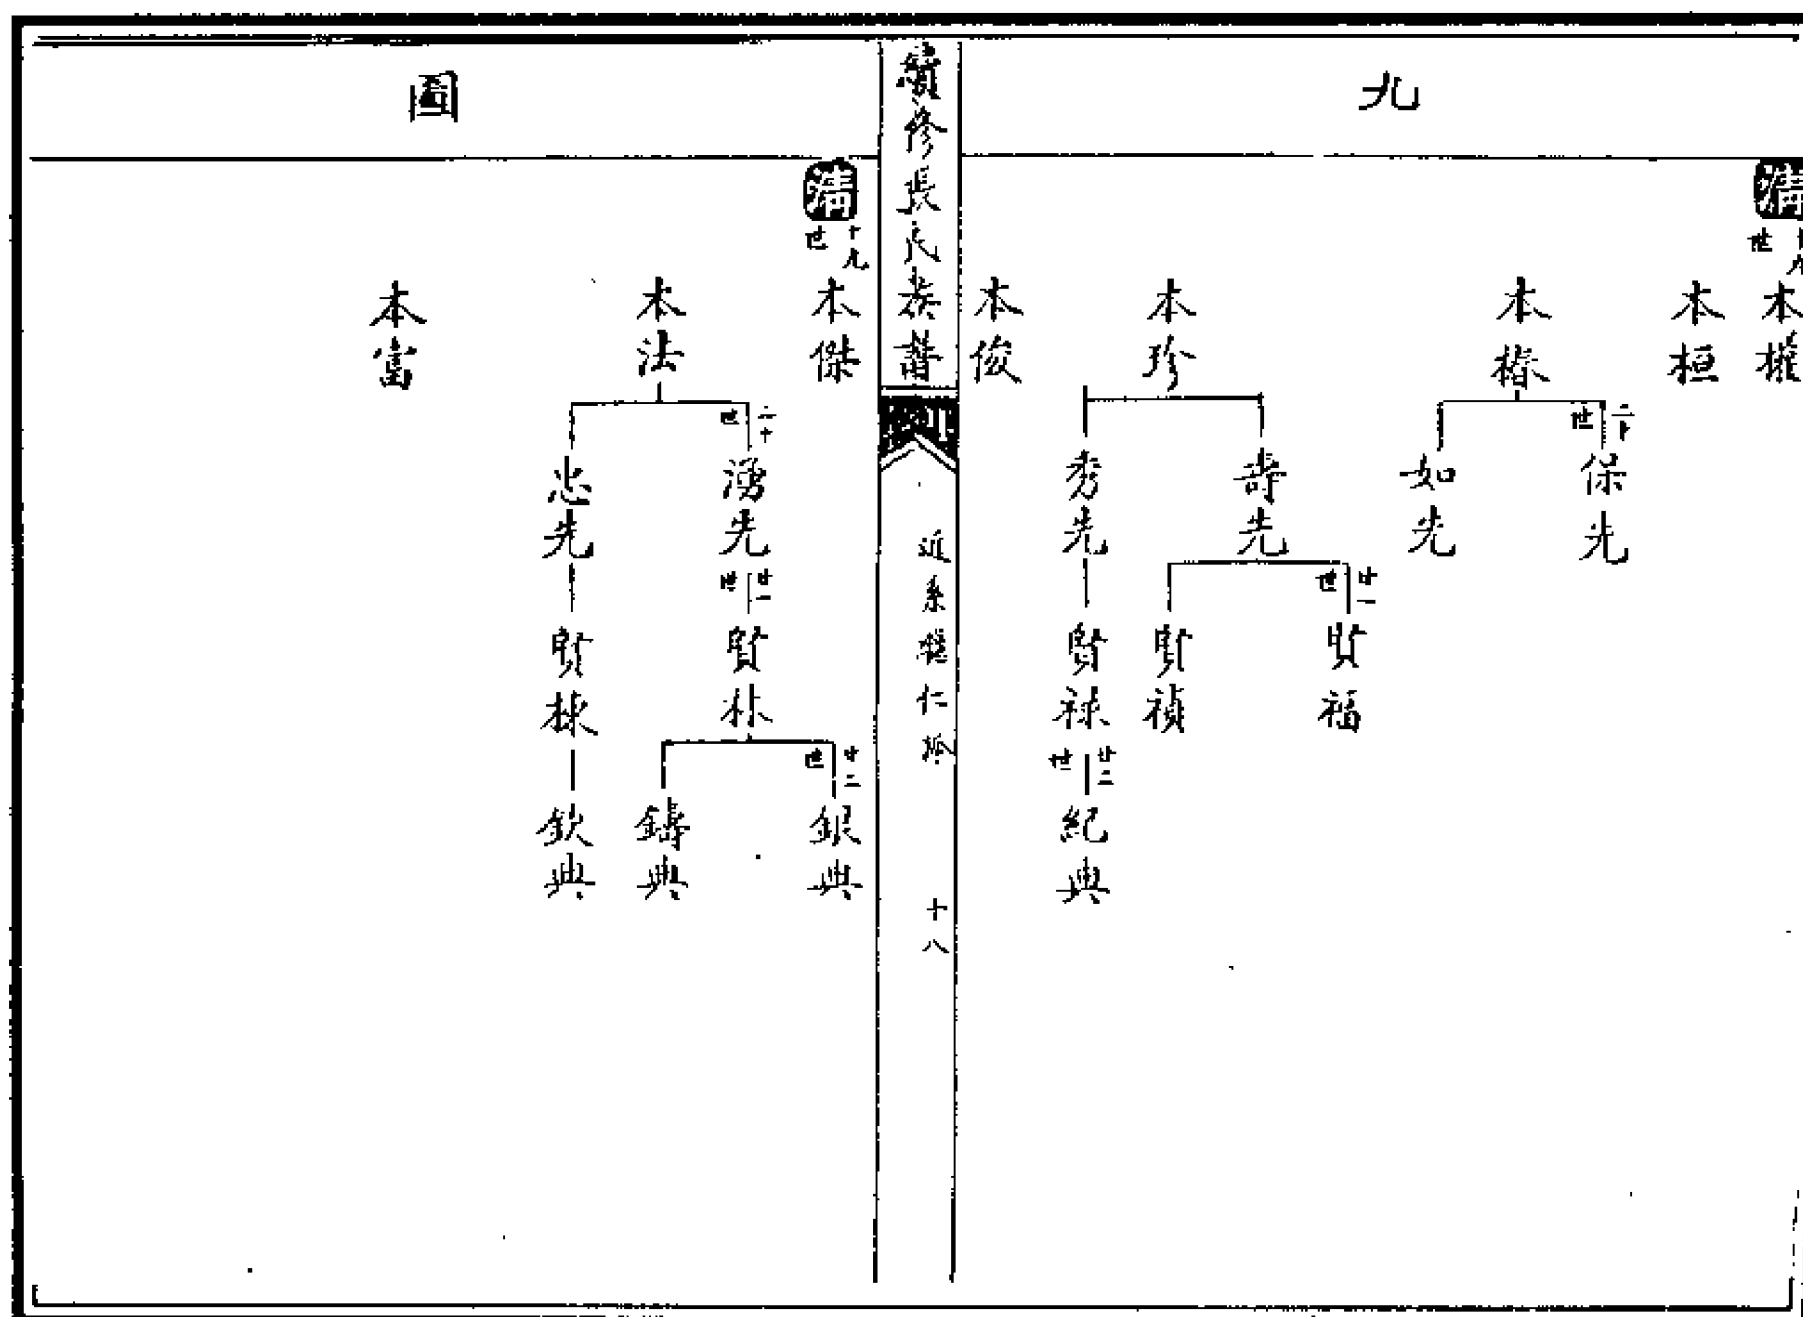 九
清
十九世
本權
本桓
本椿
二十世
保先
如先
本珍
壽先
廿一世
賢福
賢禎
秀先
賢祿
廿二世
紀典
本俊
續修張氏族譜
近系
仁
十八
圖
清
十九世
本傑
本法
二十世
湧先
廿一世
賢林
廿二世
銀典
鑄典
忠先
賢
欽典
本富